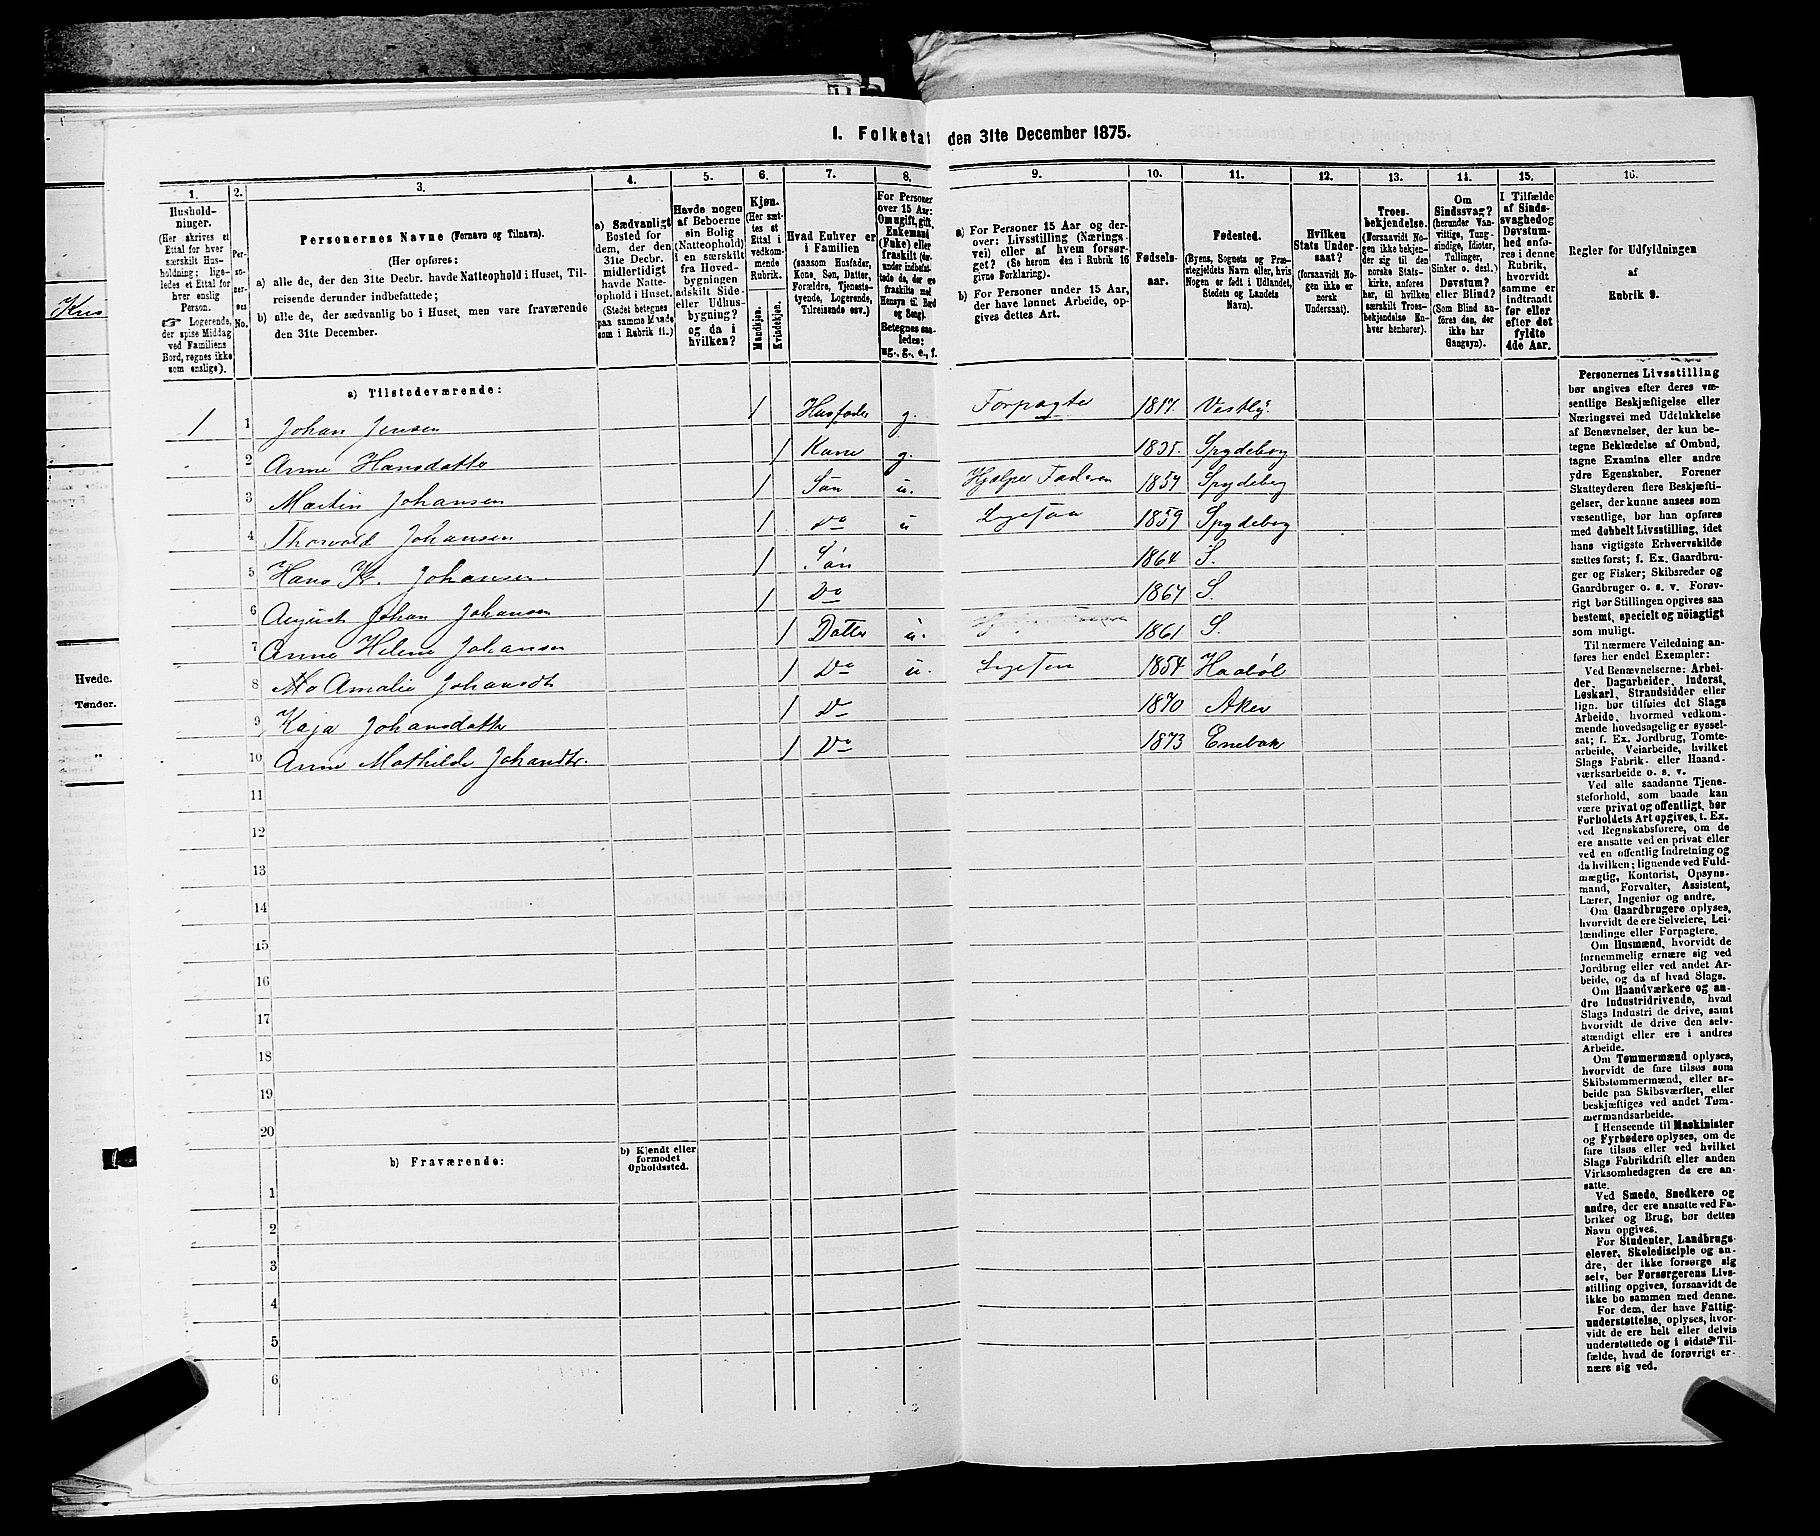 I. Folketæl
den 31te December 1875.
1.
Hushold-
ninger.
(Her skrives et
Ettal for hver
særskilt Hus-
holdning; lige-
ledes et Ettal for
hver enslig
Person.
☞ Logerende,
der spise Middag
ved Familiens
Bord, regnes ikke
som enslige).
2.
Per-
so-
ner-
nes
No.
3.
Personernes Navne (Fornavn og Tilnavn).
(Her opføres:
a) alle de, der den 31te Decbr. havde Natteophold i Huset, Til-
reisende derunder indbefattede;
b) alle de, der sædvanlig bo i Huset, men vare fraværende
den 31te December.
4.
a) Sædvanligt
Bosted for
dem, der den
31te Decbr.
midlertidigt
havde Natte-
ophold i Huset.
(Stedet betegnes
paa samme Maade
som i Rubrik 11.)
5.
Havde nogen
af Beboerne
sin Bolig
(Natteophold)
i en særskilt
fra Hoved-
bygningen
adskilt Side-
eller Udhus-
bygning?
og da i
hvilken?
6.
Kjøn.
(Her sæt-
tes et
Ettal i
vedkom-
mende
Rubrik.
Mandkjøn.
Kvindekjøn.
7.
Hvad Enhver er
i Familien
(saasom Husfader,
Kone, Søn, Datter,
Forældre, Tjeneste-
tyende, Logerende,
Tilreisende osv.)
8.
For Personer
over 15 Aar:
Om ugift, gift,
Enkemand
(Enke) eller
fraskilt
Betegnes saa-
ledes:
ug., g., e., f.
9.
a) For Personer 15 Aar og der-
over: Livsstilling (Nærings-
vei) eller af hvem forsør-
get? (Se herom den i Rubrik 16
givne Forklaring).
b) For Personer under 15 Aar,
der have lønnet Arbeide, op-
gives dettes Art.
10.
Fødsels-
aar.
11.
Fødested.
(Byens, Sognets og Præ-
stegjeldets Navn eller, hvis
Nogen er født i Udlandet,
Stedets og Landets
Navn).
12.
Hvilken
Stats Under-
saat?
(forsaavidt No-
gen ikke er
norsk
Undersaat).
13.
Troes-
bekjendelse.
(Forsaavidt No-
gen ikke bekjen-
der sig til den
norske Stats-
kirke, anføres
her, til hvilken
særskilt Troes-
bekjendelse En-
hver henhører).
14.
Om
Sindssvag?
(herunder Van-
vittige, Tung-
sindige, Idioter,
Tullinger,
Sinker o. desl.)
Døvstum?
eller Blind?
(Som Blind an-
føres den, der
ikke har
Gangsyn).
15.
I Tilfælde
af Sinds-
svaghed og
Døvstum-
hed anfø-
res i denne
Rubrik,
hvorvidt
samme er
indtraadt
før eller
efter det
fyldte
4de Aar.
16.
Regler for Udfyldningen
af
Rubrik 9.
a) Tilstedeværende:
1 1 Johan Jensen 1 Husfader g. Forpagter 1817. Vestby.
2 Anne Hansdatter 1 Kone g. 1835. Spydeberg
3 Martin Johansen 1 Søn u. Hjælper Faderen 1857 Spydeberg
4 Thorvald Johansen 1 Do u Ligesaa 1859 Spydeberg
5 Hans K. Johansen 1 Søn 1864 S.
6 August Johan Johansen 1 Do 1867 S.
7 Anne Helene Johansen 1 Datter u. 1861 S.
8 Amalie Johansdt 1 Do u. Ligesaa 1854 Haabøl
9 Kaja Johansdatter 1 Do 1870 Aker
10 Anne Mathilde Johansdtr. 1 Do 1873 Enebak
11
12
13
14
15
16
17
18
19
20
b) Fraværende:
b) Kjendt eller
formodet
Opholdssted.
1
2
3
4
5
6
Personernes Livsstilling
bør angives efter deres væ-
sentlige Beskjæftigelse eller
Næringsvei med Udelukkelse
af Benævnelser, der kun be-
tegne Beklædelse af Ombud,
tagne Examina eller andre
ydre Egenskaber. Forener
Skatteyderen flere Beskjæfti-
gelser, der kunne ansees som
væsentlige, bør han opføres
med dobbelt Livsstilling, idet
hans vigtigste Erhvervskilde
sættes først; f. Ex. Gaardbru-
ger og Fisker; Skibsreder og
Gaardbruger o. s. v. Forøv-
rigt bør Stillingen opgives saa
bestemt, specielt og nöiagtigt
som muligt.
Til nærmere Veiledning an-
føres her endel Exempler:
Ved Benævnelserne: Arbei-
der, Dagarbeider, Inderst,
Løskarl, Strandsidder eller
lign. bør tilføies det Slags
Arbeide, hvormed vedkom-
mende hovedsagelig er syssel-
sat; f. Ex. Jordbrug, Tomte-
arbeide, Veiarbeide, hvilket
Slags Fabrik- eller Haand-
værksarbeide o. s. v.
Ved alle saadanne Tjene-
steforhold, som baade kan
være privat og offentligt, bør
Forholdets Art opgives, t. Ex.
ved Regnskabsførere, om de
ere ansatte ved en privat eller
ved en offentlig Indretning og
da hvilken; lignende ved Fuld-
mægtig, Kontorist, Opsyns-
mand, Forvalter, Assistent,
Lærer, Ingeniør og andre.
Om Gaardbrugere oplyses,
hvorvidt de ere Selveiere, Lei-
lændinge eller Forpagtere.
Om Husmænd, hvorvidt de
fornemmelig ernære sig ved
Jordbrug eller ved andet Ar-
beide, og da af hvad Slags.
Om Haandværkere og an-
dre Industridrivende, hvad
Slags Industri de drive, samt
hvorvidt de drive den selv-
stændigt eller ere i andres
Arbeide.
Om Tømmermænd oplyses,
hvorvidt de fare tilsøs som
Skibstømmermænd, eller ar-
beide paa Skibsværfter, eller
beskjæftiges ved andet Tøm-
mermandsarbeide.
I Henseende til Maskinister
og Fyrbødere oplyses, om de
fare tilsøs eller ved hvilket
Slags Fabrikdrift eller anden
Virksomhedsgren de ere an-
satte.
Ved Smede, Snedkere og
andre, der ere ansatte ved Fa-
briker og Brug, bør dettes
Navn opgives.
For Studenter, Landbrugs-
elever, Skoledisciple og an-
dre, der ikke forsørge sig
selv, bør Forsørgerens Livs-
stilling opgives, forsaavidt de
ikke bo sammen med denne.
For dem, der have Fattig-
understøttelse, oplyses, hvor-
vidt de ere helt eller delvis
understøttede og i sidste Til-
fælde, hvad de forøvrigt er-
nære sig ved.
Hvede.
Tønder.